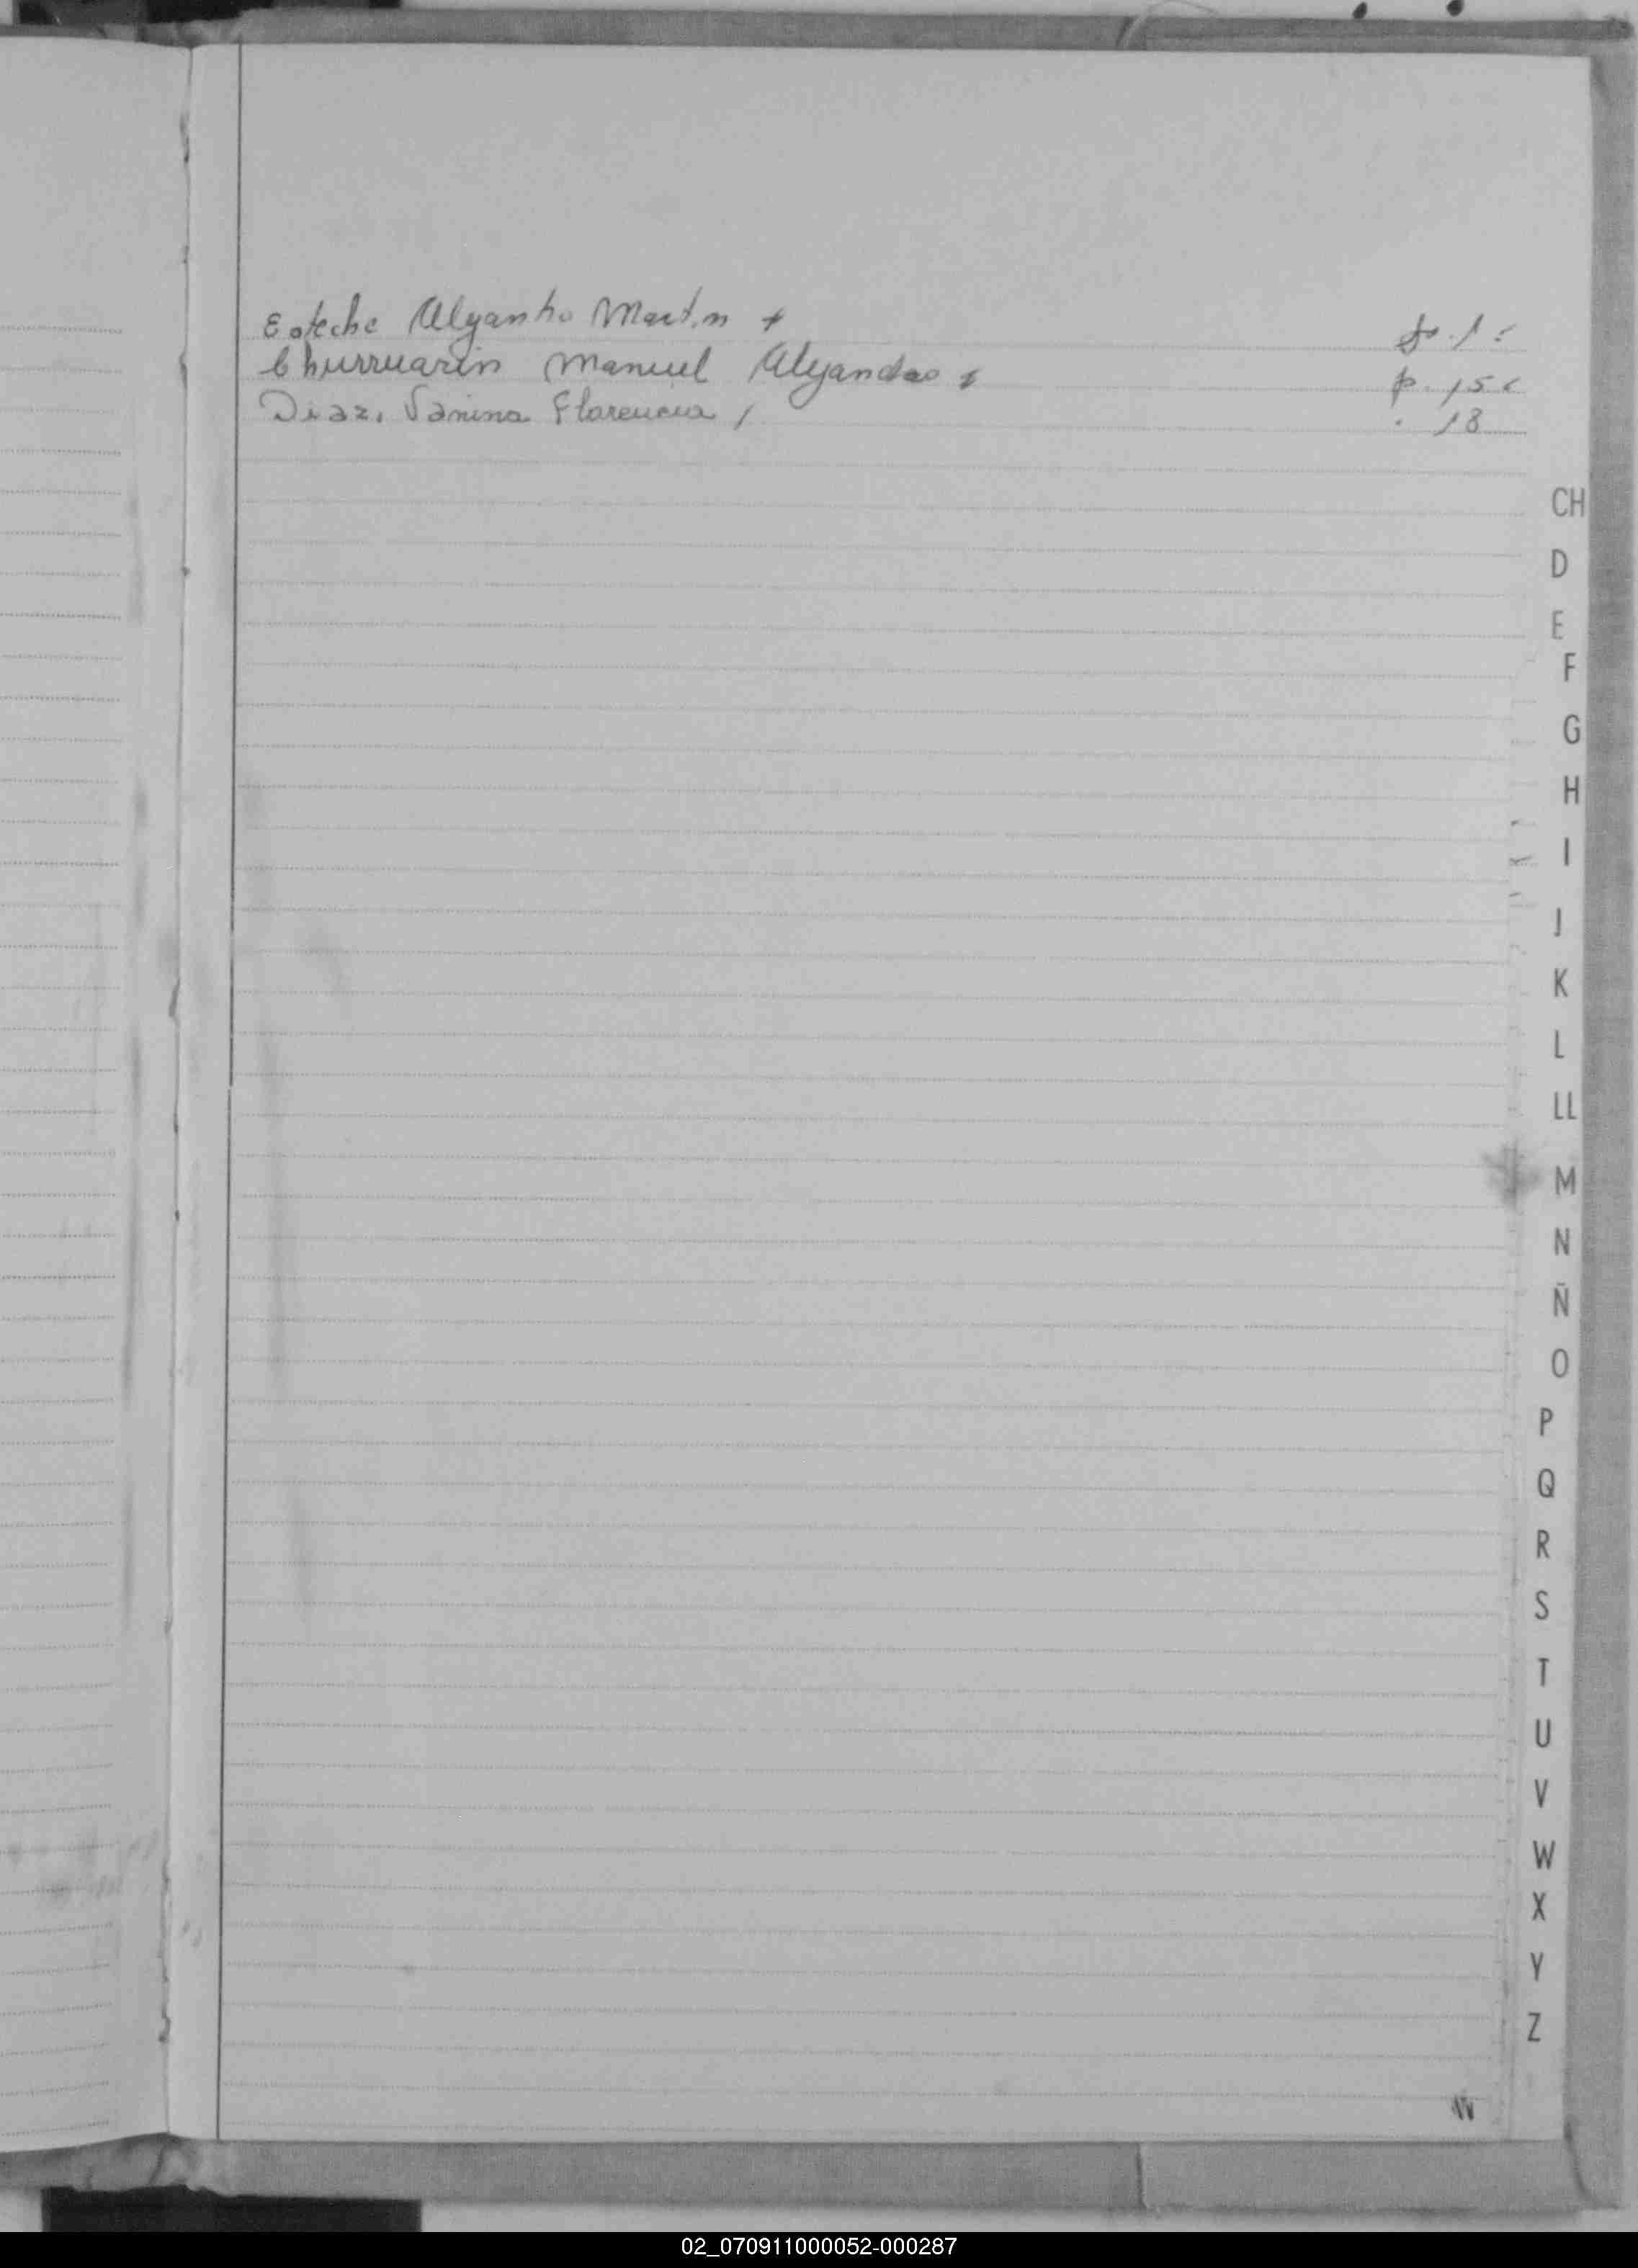 Esteche Alejandro Martin
Churruarin Manuel Alejandro
p. 15
Diaz, Vanina Florencia
18
CH
D
E
F
G
H
I
J
K
L
LL
M
N
Ñ
O
P
Q
R
S
T
U
V
W
X
Y
Z
02_070911000052-000287